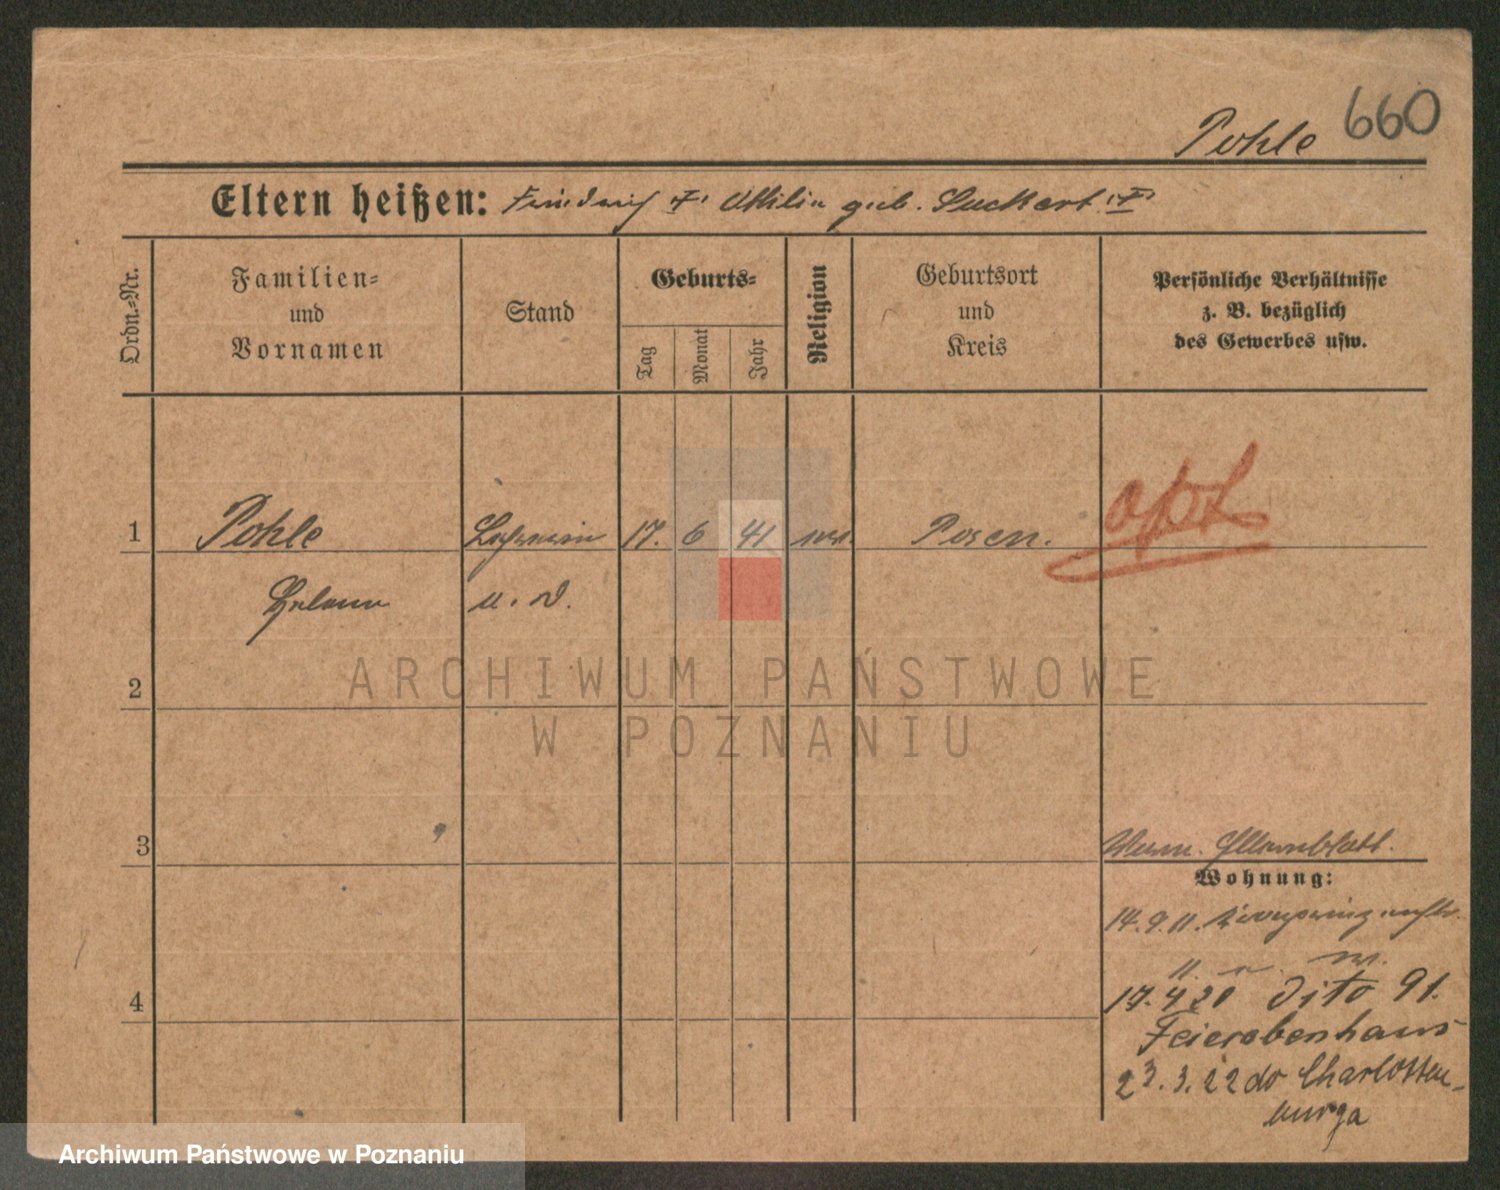 660
Pohle
Eltern heißen: Friedrich Ottilie geb. Luckert
Ordn.-Nr.
Familien-
und
Vornamen
Stand
Geburts-
Tag
Monat
Jahr
Religion
Geburtsort
und
Kreis
Persönliche Verhältnisse
z. B. bezüglich
des Gewerbes usw.
1 Pohle Lehrerin 17. 6 41 Posen.
Helene a. D.
ARCHIWUM PAŃSTWOWE
W POZNANIU
2
3
Elternblatt.
Wohnung:
14.9.11.
4
17.4 20 dito 91.
Feierabenhaus
23.3.22 do Charlotten-
burga
Archiwum Państwowe w Poznaniu